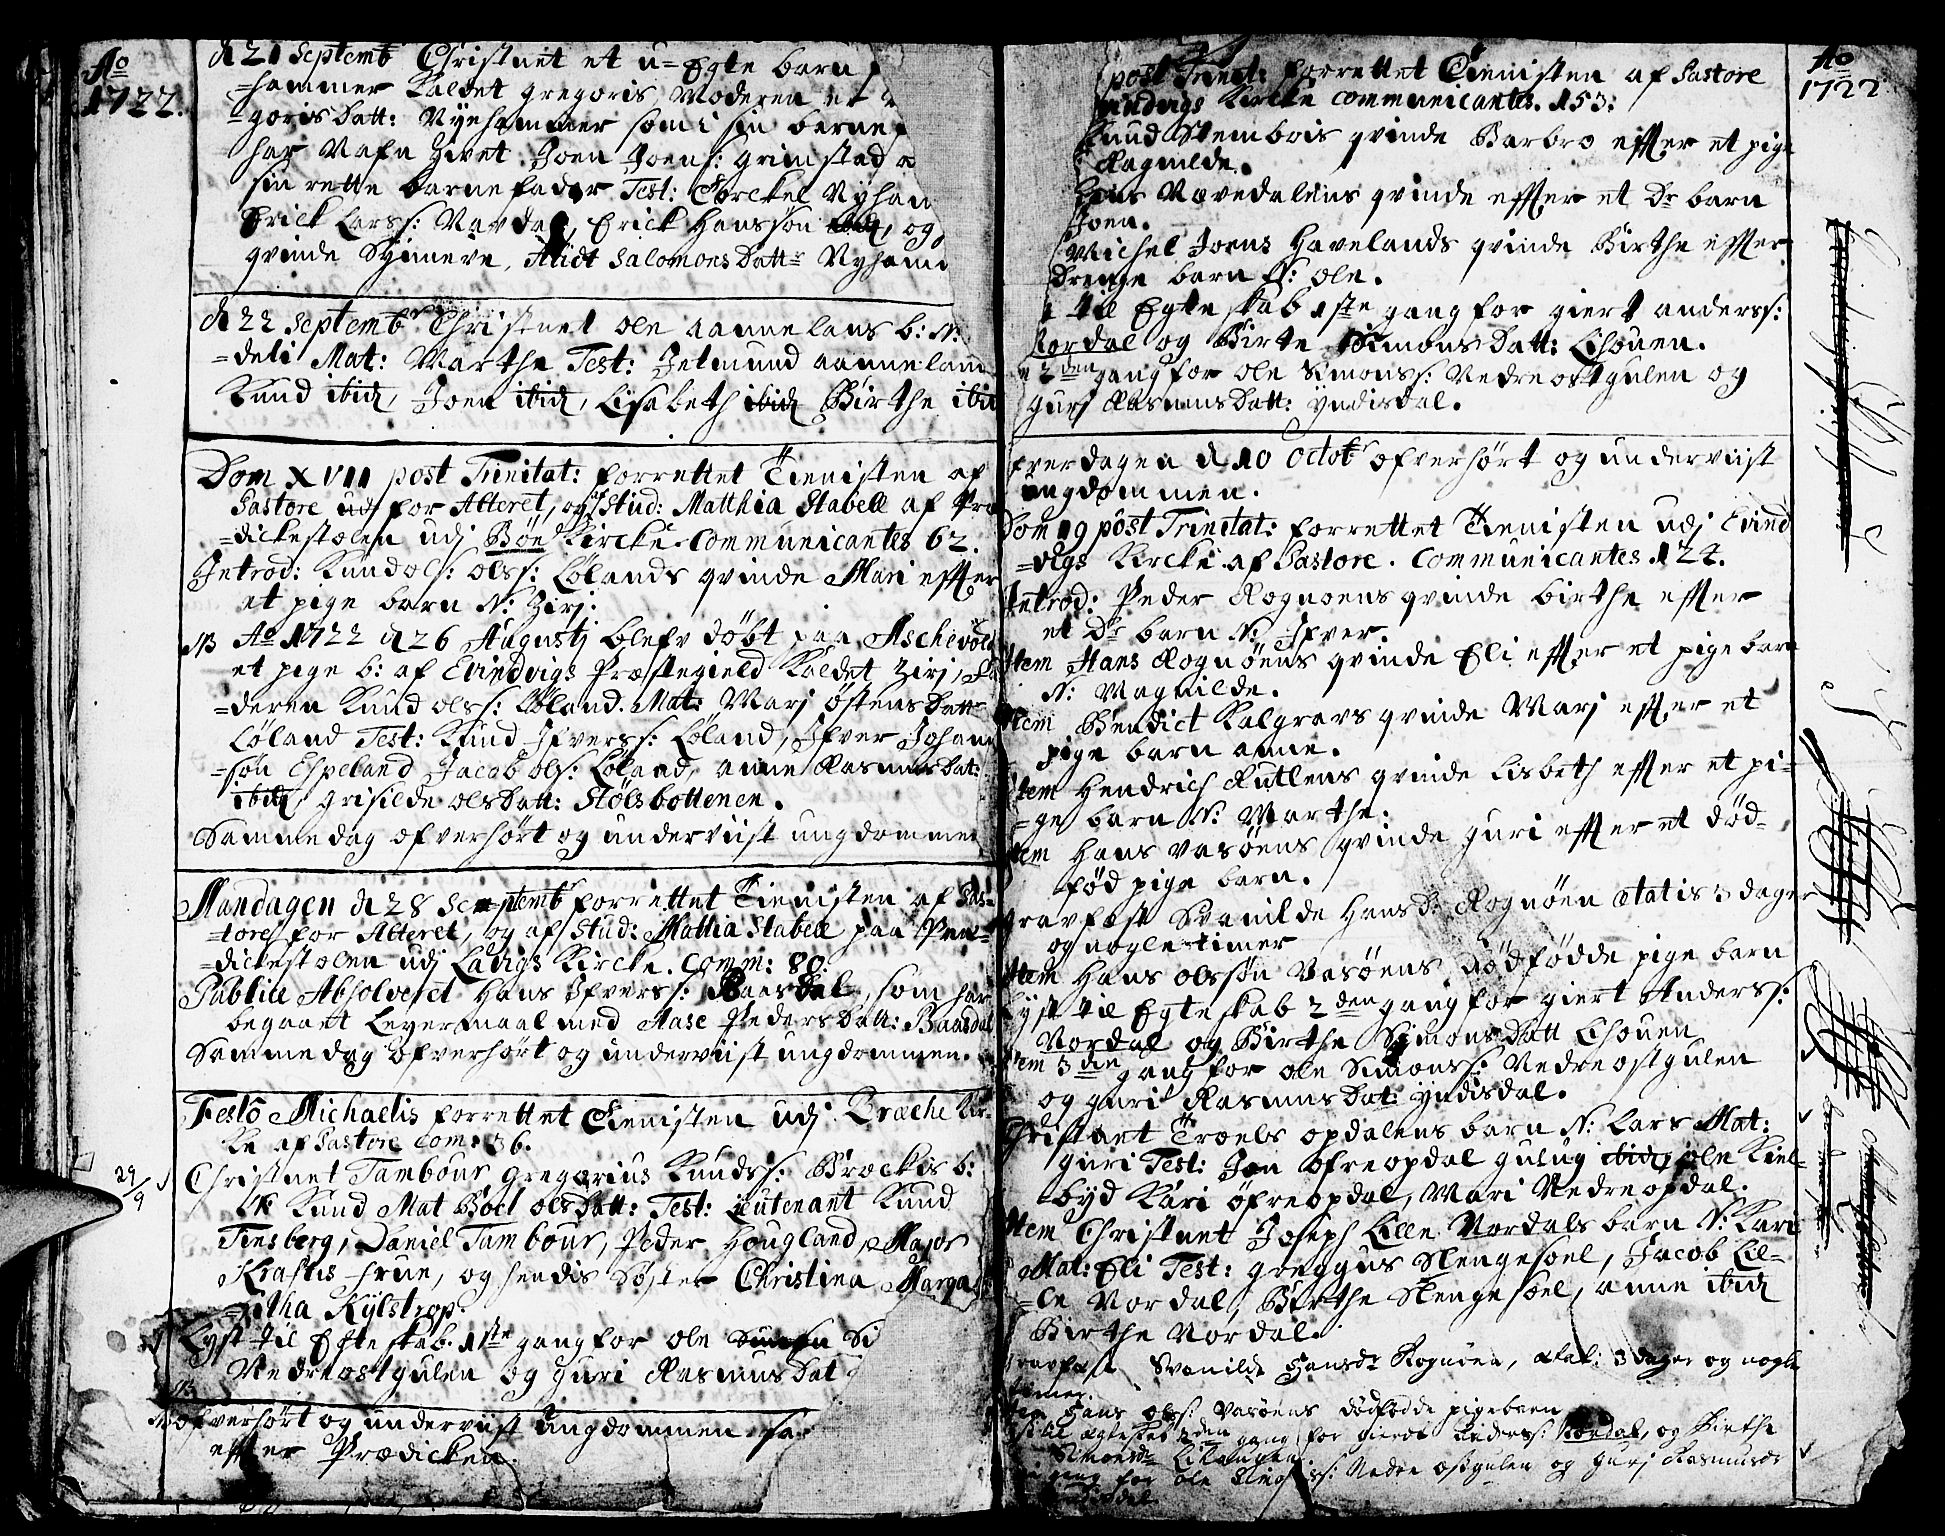 Ao
1722.
d 21 Septemb Christnet et u=Egte barn
=hammer Kaldet gregoris, Moderen er
=goris Datt: Nyehammer som i sin barne
har Nafn givet. Joen Joens: Grimstad
sin rette barne fader Test: Torckel Nyham
Erick Larss: Navdal, Erick Hansson ibid, og
qvinde Symeve, Allict Salomons Dattr Nyham
d 22 Septembr Christnet ole aannelans b: N:
=deli Mat: Marthe Test: Jetmund aanneland
Knud ibid, Joen ibid, Lisabeth ibid Birthe ibid
Dom XVII post Trinitat: forrettet Tienisten af
Pastore udj for Alteret, og Stud: Matthia Stabell af Præ
=dickestolen udj Böe Kircke. Communicantes 62.
Introd: Knud ols: Lölands qvinde Mari effter
et pige barn N: Zirj:
NB Ao 1722 d 26 Augustj blefv döbt paa Aschevold
et pige b: af Evindvigs Præstegield Kaldet Zirj, Fa
=deren Knud olss: Löland. Mat: Marj östens Dattr
Löland Test: Knud Ifverss: Löland, Ifver Johann
=sön Espeland Jacob ols: Löland, anne Rasmus Dat:
ibid, grisilde ols Datt: Stölsbottenen.
Samme dag ofverhört og underviist ungdommen
Mandagen d 28 Septemb forrettet Tienisten af Pas=
=tore for Alteret, og af Stud: Mattia Stabell paa Præ=
=dickestolen udj Ladvigs Kircke. Comm: 80.
Publice Absolveret Hans Ifverss: Baasdal, som har
begaaet Leyermaal med Aase Peders Datt: Baasdal
Samme dag ofverhört og underviist ungdommen.
Festo Michaelis forrettet Tienisten udj Bræche Kir=
ke af Pastore Com: 36.
29/9
Christnet Tambour Gregorius Knudss: Brockis b:
N: Knud Mat Boel ols Datt: Test: Leutenant Knud
Finsberg, Daniel Tambour, Peder Hougland, Major
Krafts frue, og hendis Söster Christina Marga
=retha Kylstrop.
Lyst til Egteskab 1ste gang for ole Si
Nedreostgulen og Guri Rasmus Dat
NB ofverhört og underviist ungdommen sa
effter Prædicken.
post Trinit: forrettet Tienisten af Pastore
Evindvigs Kircke Communicantes. 153:
Knud Stembois qvinde Barbro effter et pige
Ragnilde.
Hans Navedalens qvinde effter et Dr barn
Joen.
Michel Joens Havelands qvinde Birthe effter
Drenge barn N: ole.
til Egteskab 1ste gang for giert anderss:
Nordal og Birte Simons Datt: Lihouen.
2den gang for ole Simonss: Nedreostgulen og
Gurj Rasmus Datt: yndisdal.
fverdagen d 10 Octobr ofverhört og underviist
ungdommen.
Dom 19 post Trinitat: forrettet Tienisten udj Evind
=vigs Kircke af Pastore. Communicantes 124.
Introd: Peder Rognöens qvinde birthe effter
et Dr barn N: Ifver.
Item Hans Rognöens qvinde Eli effter et pige barn
N: Magnilde.
Item Bendict Kalgravs qvinde Marj effter et
pige barn anne.
Item Hendrich Rutlens qvinde Lisbeth effter et pi=
=ge barn N: Marthe:
Item Hans vasöens qvinde guri effter et död=
föd pige barn.
Gravfest Svanilde Hans Dr Rognöen Ætatis 3 dager
og nogle timer
Item Hans olssön Vasöens dödfödde pige barn
Lyst til Egteskab 2den gang for giert Anderss:
Nordal og Birthe Simons Datt Lihouen
Item 3die gang for ole Simonss: Nedreostgulen
og guri Rasmus Dat: yndisdal.
Christnet Troels opdalens barn N: Lars Mat:
guri Test: Jon öfreopdal gulug ibid, ole Kiel=
byd Kari öfreopdal, Mari Nedreopdal.
Item Christnet Joseph Lille Nordals barn N: Kari
Mat: Eli Test: greggus Slengesoel, Jacob Lil=
=le Nordal, Birthe Slengesoel, anne ibid
Birthe Nordal.
Gravfest Svanilde Hansdr Rognöen, ætat: 3 dager og nogle
timer.
Item Hans olss: Vasöens dödfödde pigebaen
til egteskab 2den gang for Giert Anderss: Nordal, og Birthe
Simonsdr Lihougen
gang for ole Simonss: Nedre ostgulen og Gurj Rasmusdr
yndisdal
Ao
1722